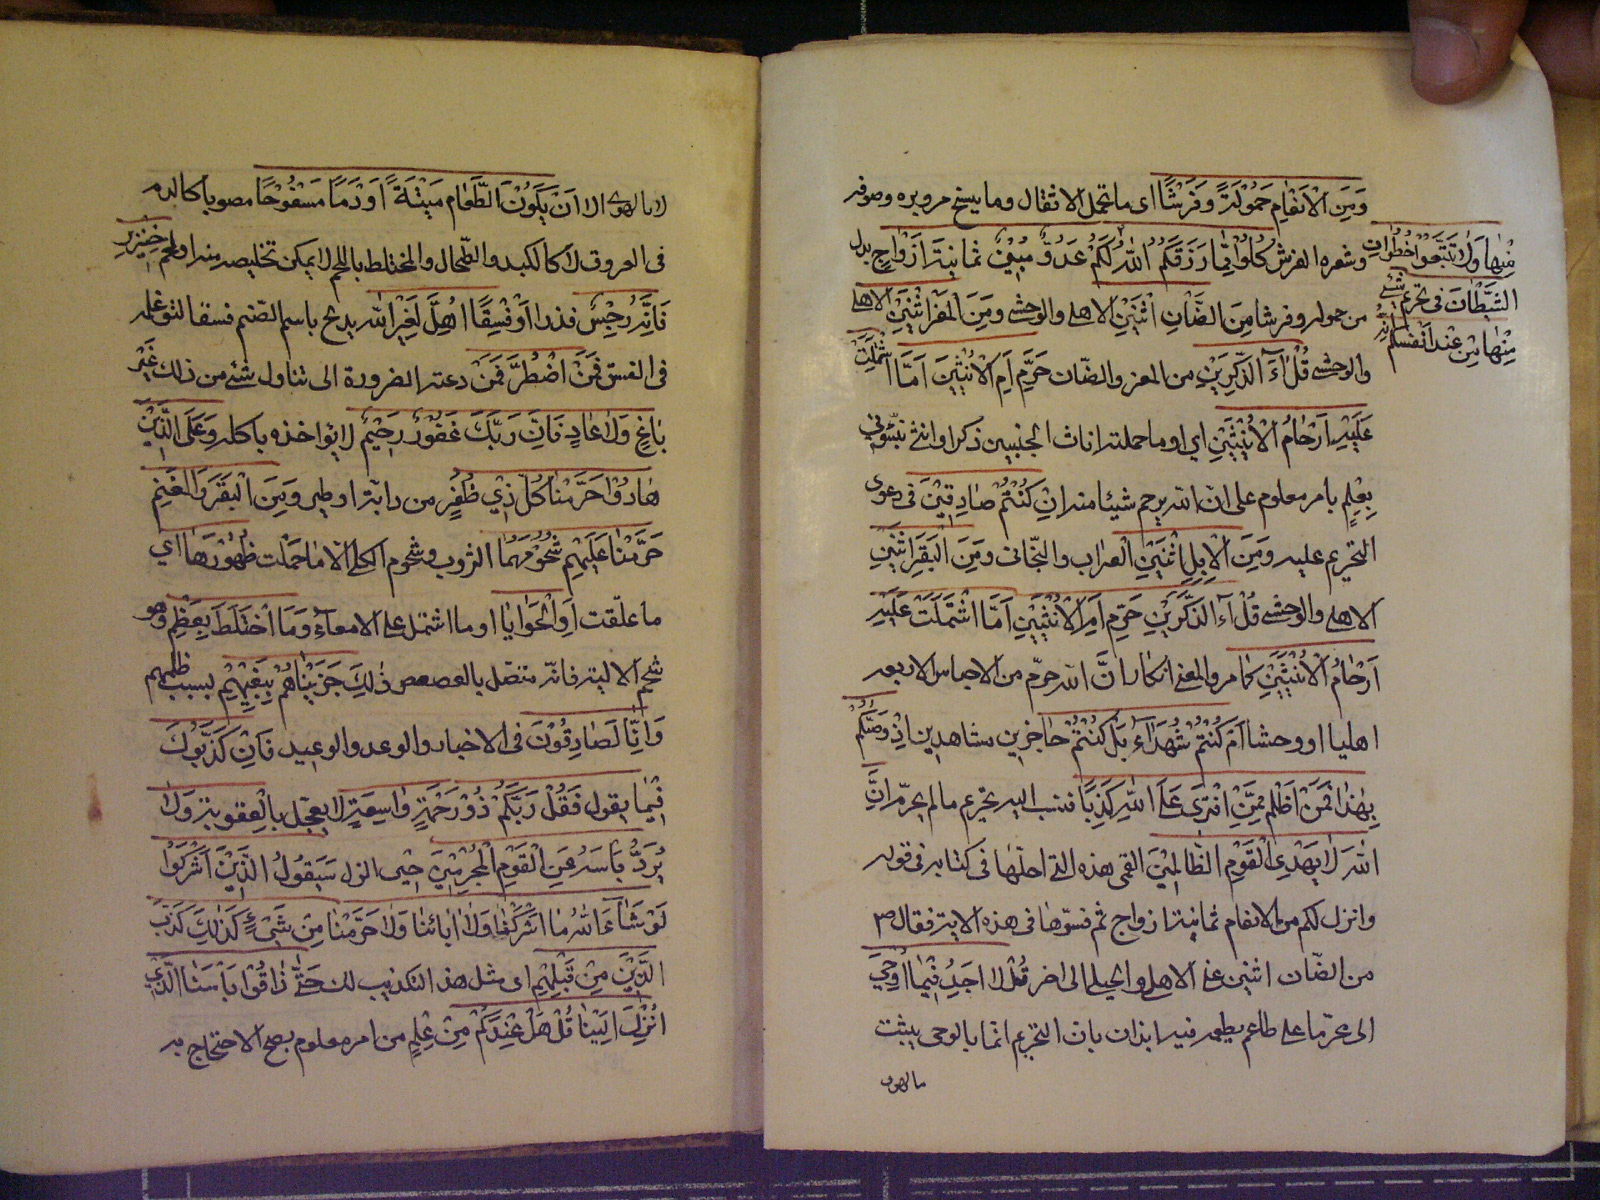 وَمِنَ الْاَنْعٰامِ حَمُولَةً وَفَرْشًا اى ما تحمل الاثقال وما ينسج من وبره وصوفه
وشعره الفرش كُلُوا مِمّٰا رَزَقَكُمُ اللّٰهُ لَكُمْ عَدُوٌّ مُبِينٌ ثَمٰانِيَةَ اَزْوٰاجٍ بدل
من حمولة وفرشا مِنَ الضَّاْنِ اثْنَيْنِ الاهلى والوحشى وَمِنَ الْمَعْزِ اثْنَيْنِ الاهلى
والوحشى قُلْ آٰلذَّكَرَيْنِ من المعز والضان حَرَّمَ اَمِ الْاُنْثَيَيْنِ اَمَّا اشْتَمَلَتْ
عَلَيْهِ اَرْحٰامُ الْاُنْثَيَيْنِ اى او ما حملته اناث الجنسين ذكرا وانثى نَبِّئُونِي
بِعِلْمٍ بامر معلوم على انّ الله حرم شيئا منه اِنْ كُنْتُمْ صٰادِقِينَ فى دعوى
التحريم عليه وَمِنَ الْاِبِلِ اثْنَيْنِ العراب والبخاتى وَمِنَ الْبَقَرِ اثْنَيْنِ
الاهلى والوحشى قُلْ آٰلذَّكَرَيْنِ حَرَّمَ اَمِ الْاُنْثَيَيْنِ اَمَّا اشْتَمَلَتْ عَلَيْهِ
اَرْحٰامُ الْاُنْثَيَيْنِ كما مر والمعنى انكار انَّ الله حرّم من الاجناس الاربعه
اهليا او وحشيا اَمْ كُنْتُمْ شُهَدٰاءَ بَلْ كُنْتُمْ حاضرين مشاهدين اِذْ وَصّٰكُمُ
بِهٰذٰا فَمَنْ اَظْلَمُ مِمَّنِ افْتَرىٰ عَلَى اللّٰهِ كَذِبًا فنسب اليه تحريم ما لم يحرّم اِنَّ
اللّٰهَ لٰا يَهْدِي الْقَوْمَ الظّٰالِمِينَ القمى هذه التى احلّها فى كتابه فى قوله
وانزل لكم من الانعام ثمانية ازواج ثم فسّرها فى هذه الاية فقال
من الضّان اثنين عنى الاهلى والجبلى الى اخره قُلْ لٰا اَجِدُ فِيمٰا اُوحِيَ
الى محرّما على طاعم يطعمه فيه ايذان بان التحريم انما بالوحى يثبت
ما لهوى
مُبِينًا وَلٰا تَتَّبِعُوا خُطُوٰاتِ
الشَّيْطٰانِ فى تحريم شىء
مِنْهٰا مِنْ عند انفسكم
لا بالهوى الا اَنْ يَكُونَ الطَّعٰام مَيْتَةً اَوْ دَمًا مَسْفُوحًا مصبوبا كالدم
فى العروق لا كالكبد والطّحال والمختلط باللحم لا يمكن تخليصه منه او لَحْمَ خِنْزِيرٍ
فَاِنَّهُ رِجْسٌ قذر اَوْ فِسْقًا اُهِلَّ لِغَيْرِ اللّٰه بِهِ ذبح باسم الصّنم فسقا لتوغله
فى الفسق فَمَنِ اضْطُرَّ فَمَنْ دعته الضرورة الى تناول شىء من ذلك غَيْرَ
بٰاغٍ وَلٰا عٰادٍ فَاِنَّ رَبَّكَ غَفُورٌ رَحِيمٌ لا يؤاخذه باكله وَعَلَى الَّذِينَ
هٰادُوا حَرَّمْنٰا كُلَّ ذِي ظُفُرٍ من دابّة او طير وَمِنَ الْبَقَرِ وَالْغَنَمِ
حَرَّمْنٰا عَلَيْهِمْ شُحُومَهُمٰا الثروب وشحوم الكلى اِلّٰا مٰا حَمَلَتْ ظُهُورُهُمٰا اى
ما علّقت اَوِ الْحَوٰايٰا او ما اشتمل على الامعاء وَمَا اخْتَلَطَ بِعَظْمٍ وهو
شحم الالية فانّه متصل بالعصعص ذٰلِكَ جَزَيْنٰاهُمْ بِبَغْيِهِمْ بسبب ظلمهم
وَاِنّٰا لَصٰادِقُونَ فى الاخبار والوعد والوعيد فَاِنْ كَذَّبُوكَ
فِيمٰا يقول فَقُلْ رَبُّكُمْ ذُو رَحْمَةٍ وٰاسِعَةٍ لا يعجّل بالعقوبة وَلٰا
يُرَدُّ بَاْسُهُ عَنِ الْقَوْمِ الْمُجْرِمِينَ حين انزل سَيَقُولُ الَّذِينَ اَشْرَكُوا
لَوْ شٰآءَ اللّٰهُ مٰا اَشْرَكْنٰا وَلٰا اٰبٰائُنٰا وَلٰا حَرَّمْنٰا مِنْ شَيْءٍ كَذٰلِكَ كَذَّبَ
الَّذِينَ مِنْ قَبْلِهِمْ اى مثل هذا التكذيب لك حَتّٰى ذٰاقُوا بَاْسَنٰا الّذى
اُنْزِلَ اِلَيْنٰا قُلْ هَلْ عِنْدَكُمْ مِنْ عِلْمٍ من امر معلوم يصح الاحتجاج به